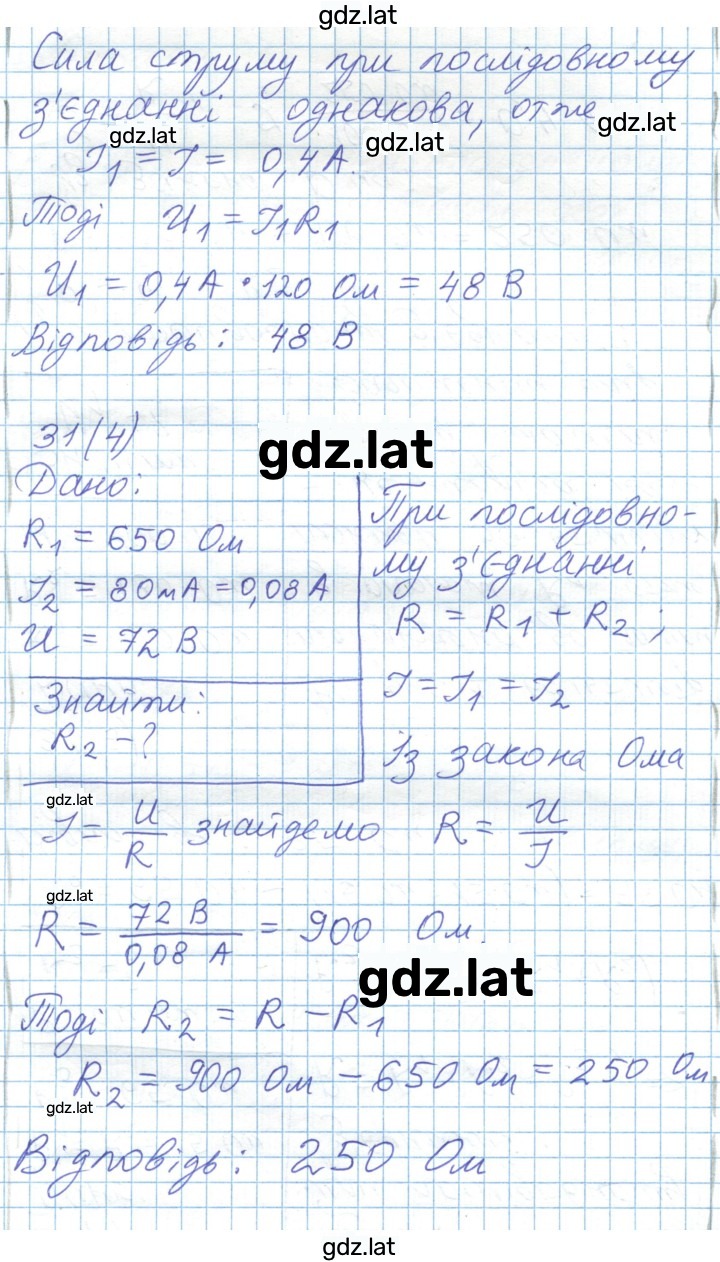 gdz.lat
Сила струму при послідовному
з'єднанні однакова, отже
gdz.lat gdz.lat gdz.lat
I₁ = I = 0,4 А.
Тоді U₁ = I₁R₁
U₁ = 0,4 А • 120 Ом = 48 В
Відповідь: 48 В
31(4)
gdz.lat
Дано:
R₁ = 650 Ом
I₂ = 80 мА = 0,08 А
U = 72 В
Знайти:
R₂ - ?
При послідовно-
му з'єднанні
R = R₁ + R₂ ;
I = I₁ = I₂
Із закона Ома
gdz.lat
I = U/R знайдемо R = U/I
gdz.lat
R = 72 В / 0,08 А = 900 Ом.
gdz.lat
Тоді R₂ = R - R₁
R₂ = 900 Ом - 650 Ом = 250 Ом
gdz.lat
Відповідь: 250 Ом
gdz.lat